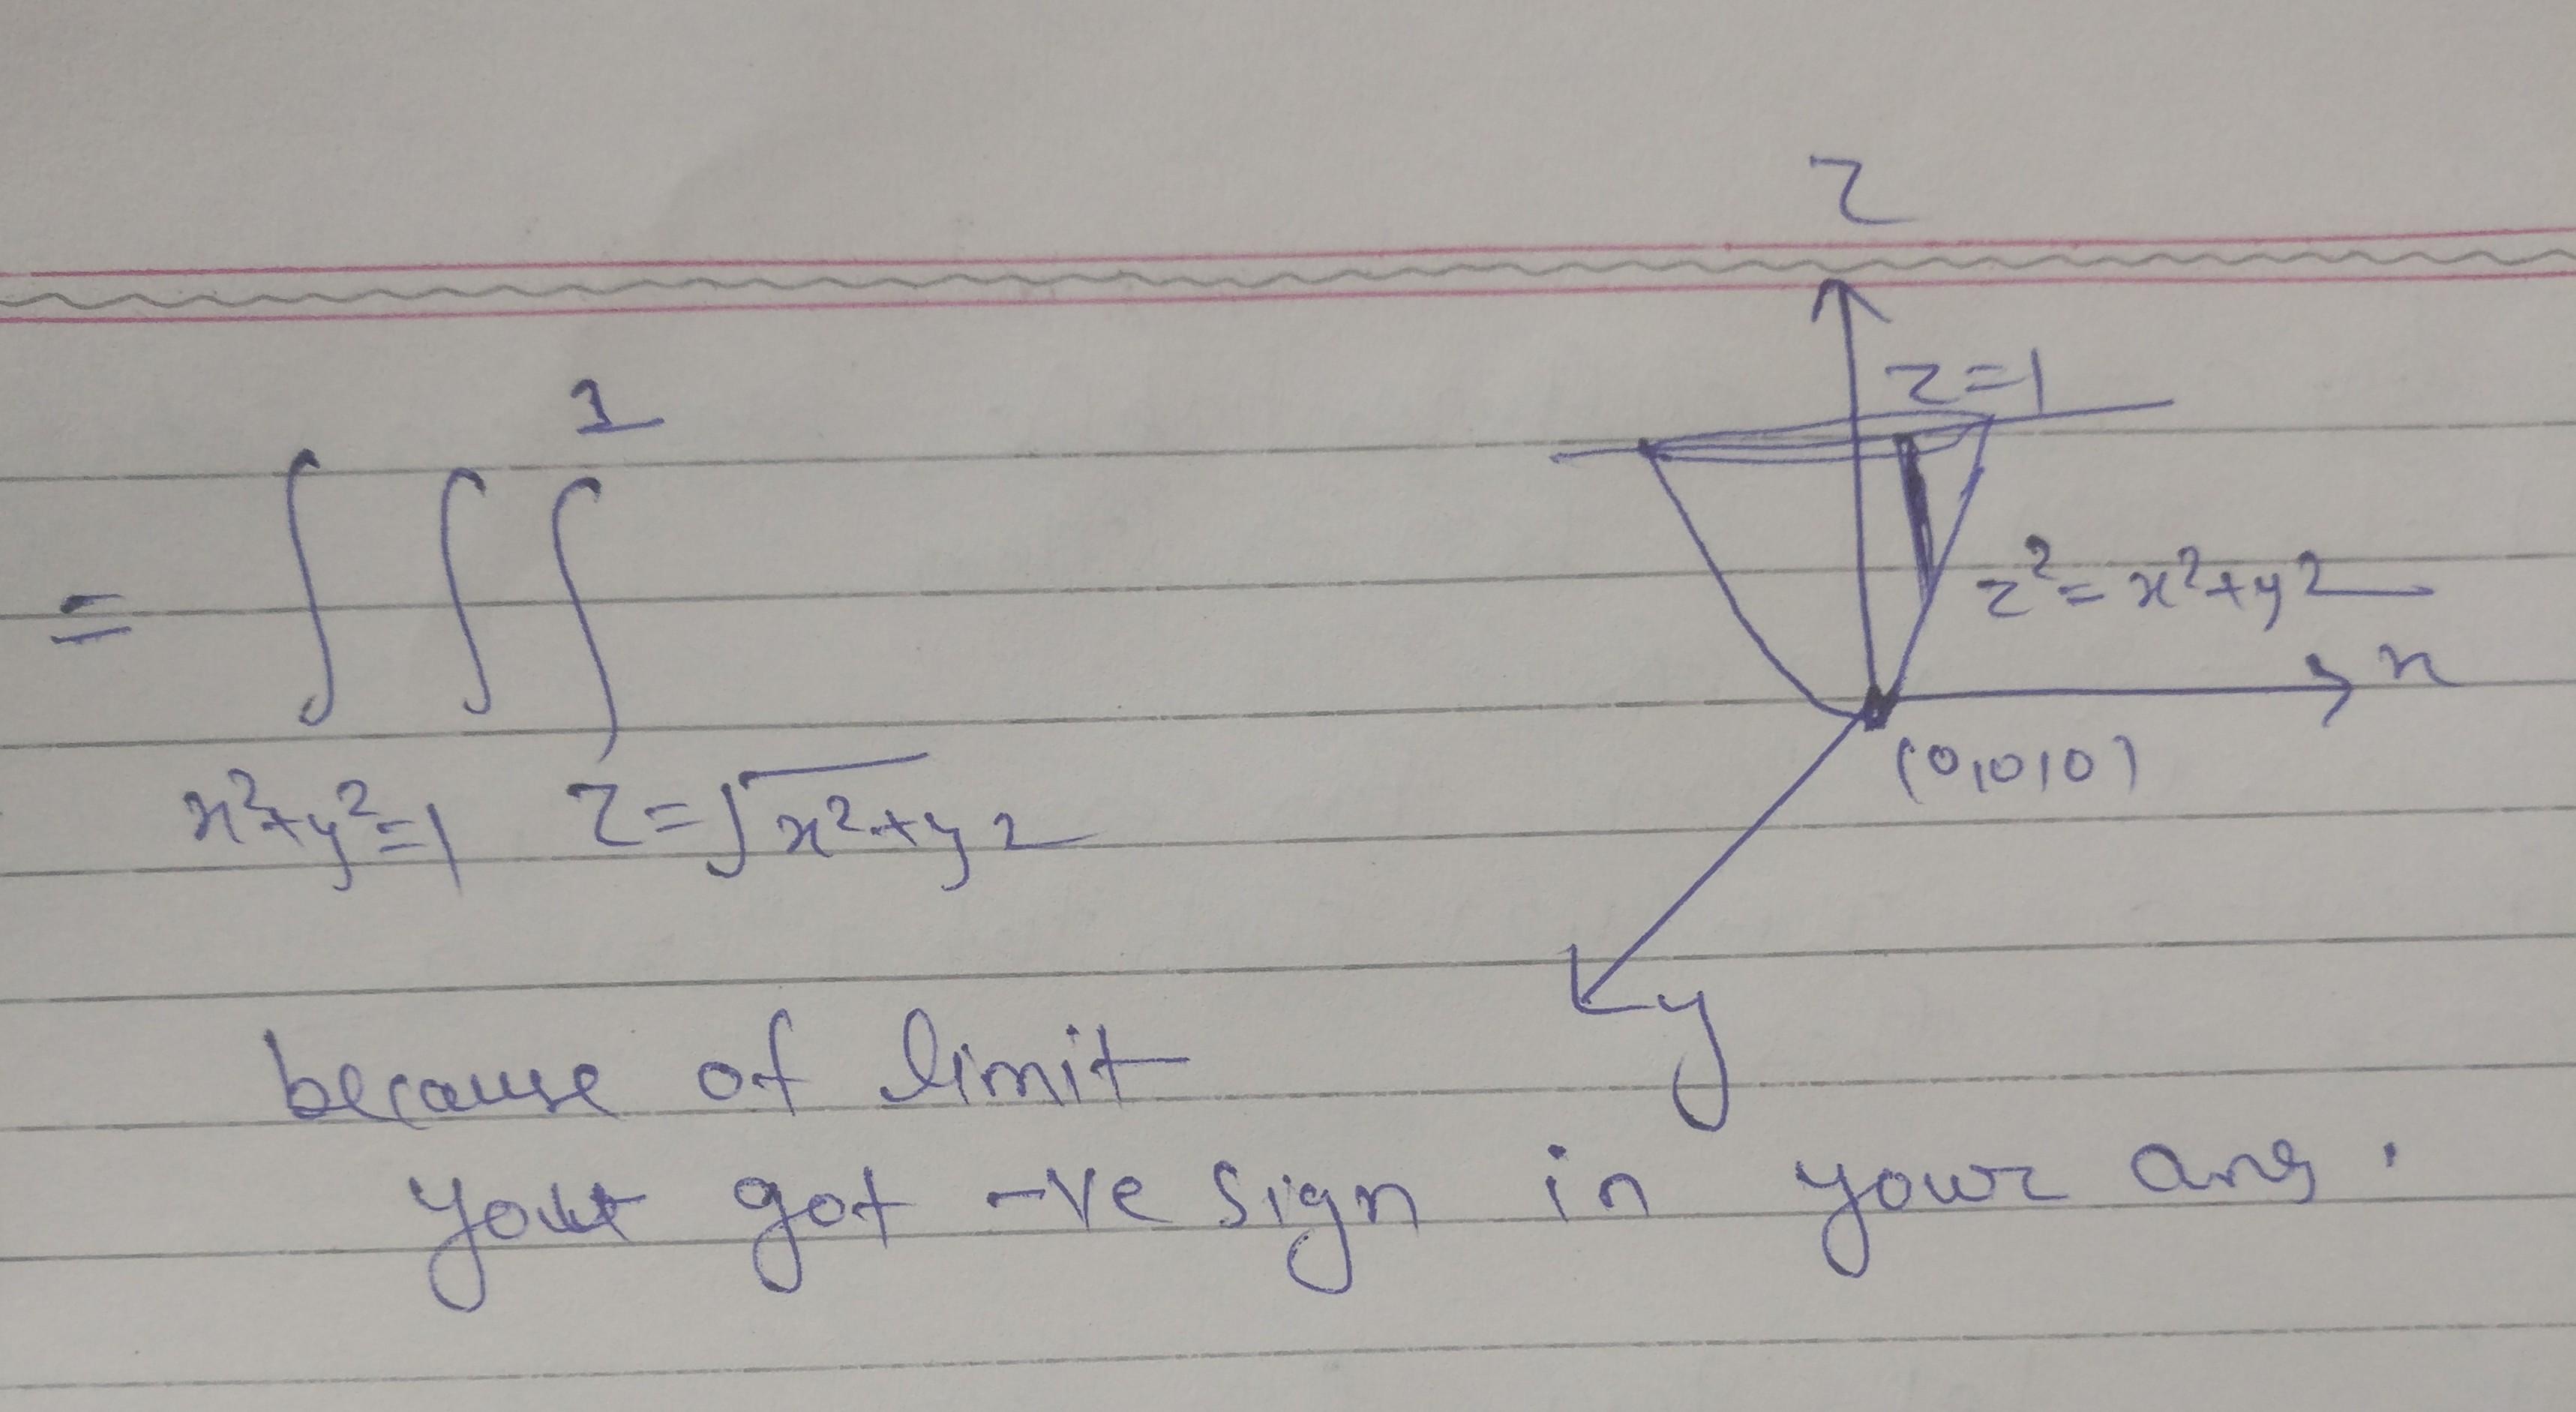 z
1
z=1
= ∫ ∫ ∫
z²=x²+y²
x
x²+y²=1 z=√x²+y²
(0,0,0)
y
because of limit
you got -ve sign in your ans.